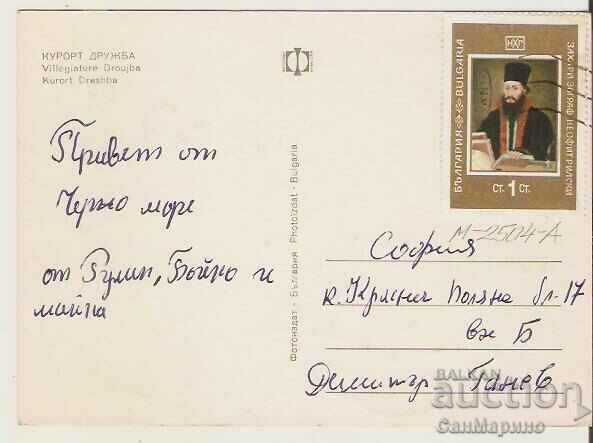 КУРОРТ ДРУЖБА
Villegiature Droujba
Kurort Dreshba
Привет от
Черно море
от Румен, Бойко и
майка
Фотоиздат - България Photoizdat - Bulgaria
НХГ
БЪЛГАРИЯ BULGARIA
ЗАХАРИ ЗОГРАФ НЕОФИТ РИЛСКИ
СТ. 1 СТ.
М-2504-А
София
к. Красна Поляна бл-17
вх Б
Димитър Ганев
BALKAN
auction
СанМарино